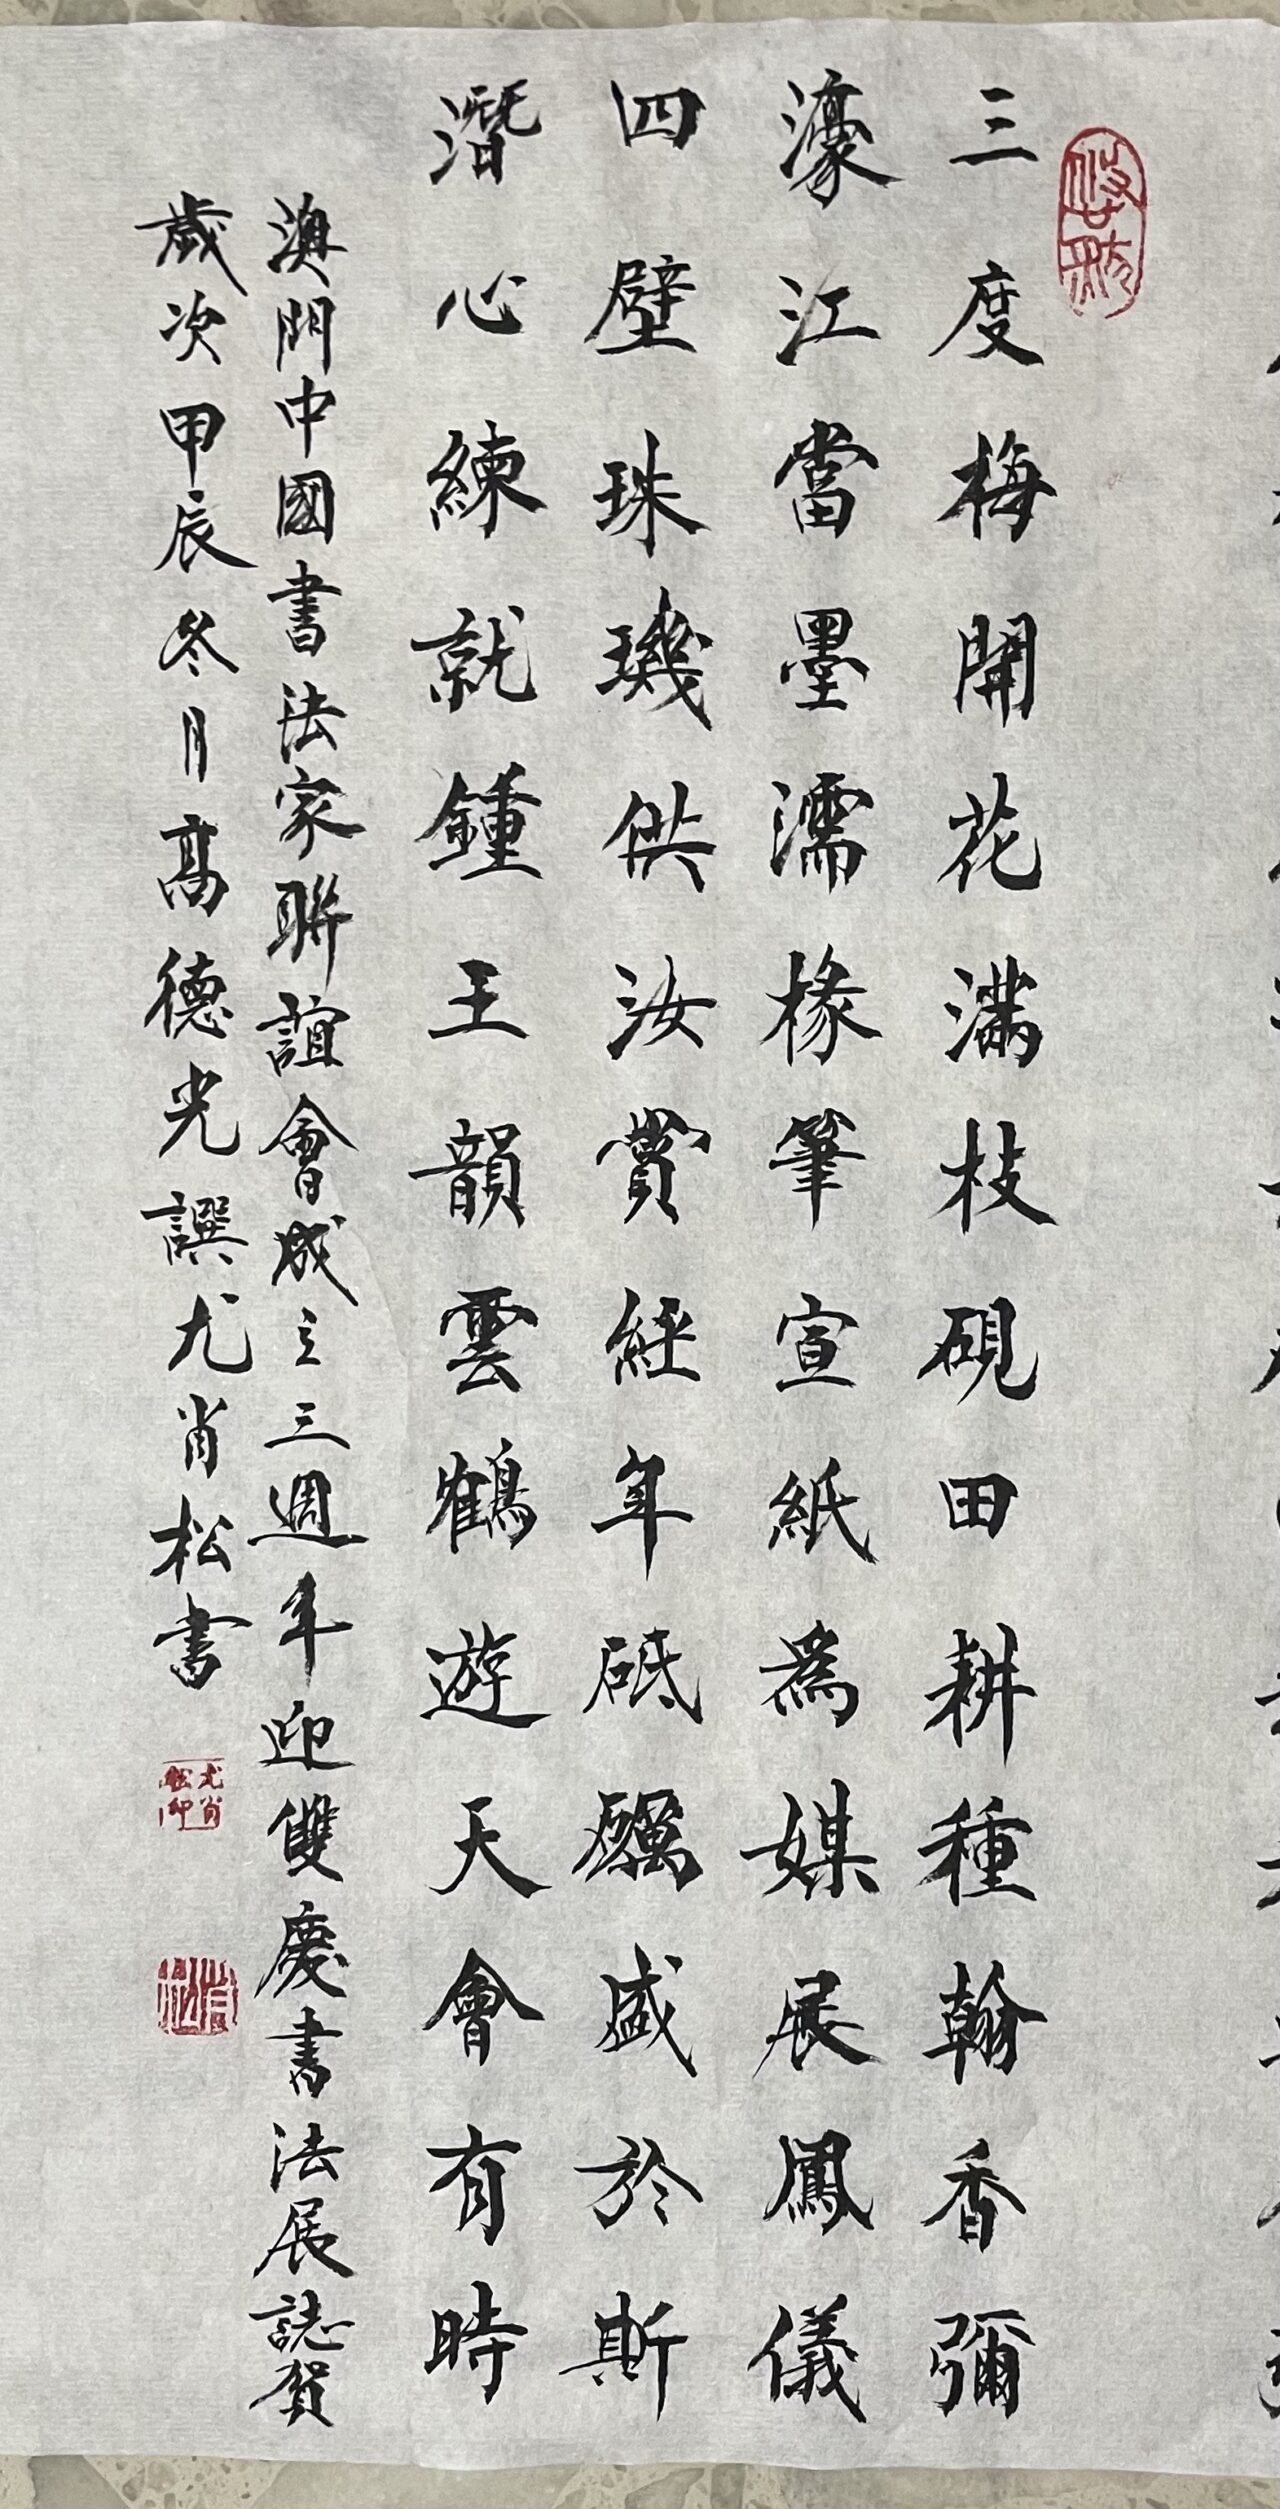 三度梅開花滿枝硯田耕種翰香彌
濠江當墨濡椽筆宣紙為媒展鳳儀
四壁珠璣供汝賞經年砥礪盛於斯
潛心練就鍾王韻雲鶴遊天會有時
澳門中國書法家聯誼會成立三週年迎雙慶書法展誌賀
歲次甲辰冬月高德光譔尤肖松書
尤肖松印